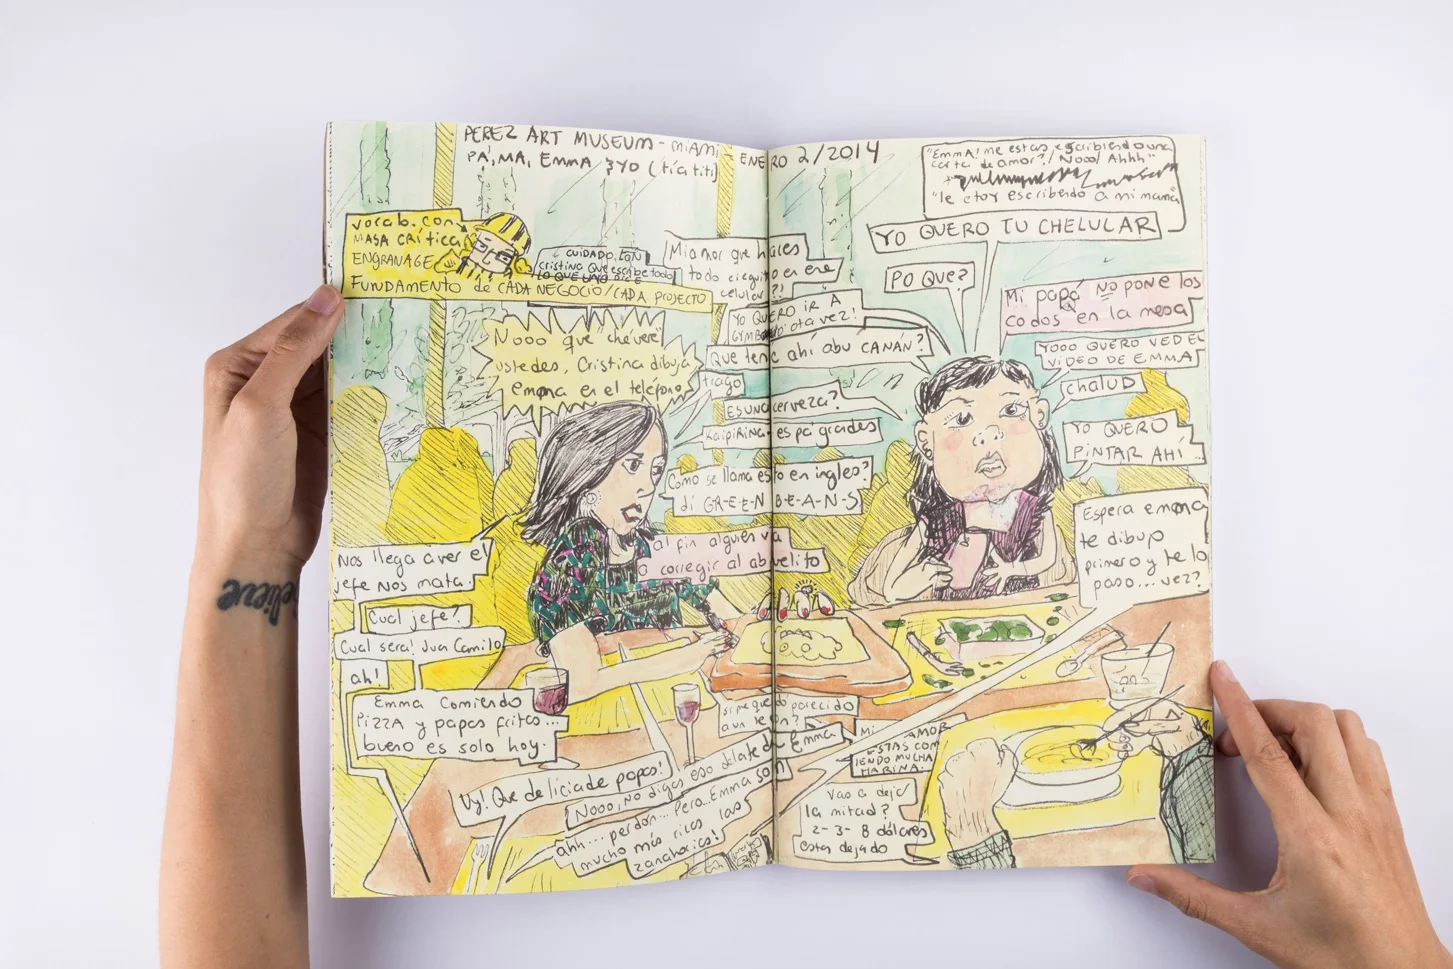 PEREZ ART MUSEUM - MIAMI
ENERO 2/2014
PA, MA, EMMA ƷYO (tía titi)
vocab. con
MASA CRÍTICA
ENGRANAGE
FUNDAMENTO de CADA NEGOCIO/CADA PROYECTO
CUIDADO CON
Cristina que escribe todo
LO QUE UNO DICE
Nooo que chévere
ustedes, Cristina dibuja
Emma en el teléfono
Mi amor que haces
todo cieguito en ese
celular?!
YO QUERO IR A
otavez!
Que tene ahí abu CANAN?
trago
ES UNA cerveza?
Kaipirina es pa grades
Como se llama esto en ingles?
di GR-E-E-N B-E-A-N-S
al fin alguien va
a corregir al abuelito
"Emma! me estas escribiendo una
carta de amor? / Nooo/ Ahhh"
"le etoy escribendo a mi mama"
YO QUERO TU CHELULAR
PO QUE?
Mi papá no pone los
codos en la mesa
YOOO QUERO VED EL
VIDEO DE EMMA
chalud
YO QUERO
PINTAR AHÍ...
Espera emma
te dibujo
primero y te lo
paso... vez?
Nos llega a ver el
jefe nos mata.
Cual jefe?
Cual sera! Jua Camilo
ah!
Emma comiendo
PIZZA y papas fritas...
bueno es solo hoy.
Uy! Que delicia de papas!
Nooo, no digas eso delate de Emma
ahh... perdon... pero.. Emma son
mucho más ricas las
zanahorias!
si me quedó parecido
a un leon?
MI AMOR
ESTAS COM
IENDO MUCHA
HARINA.
Vas a dejar
la mitad?
2-3-8 dólares
estas dejado
Believe